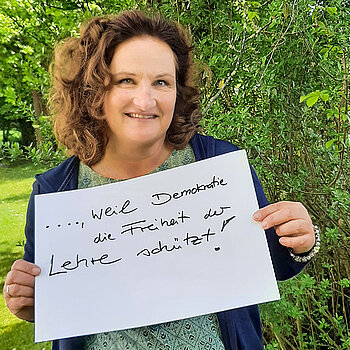 ...., weil Demokratie
die Freiheit der
Lehre schützt!